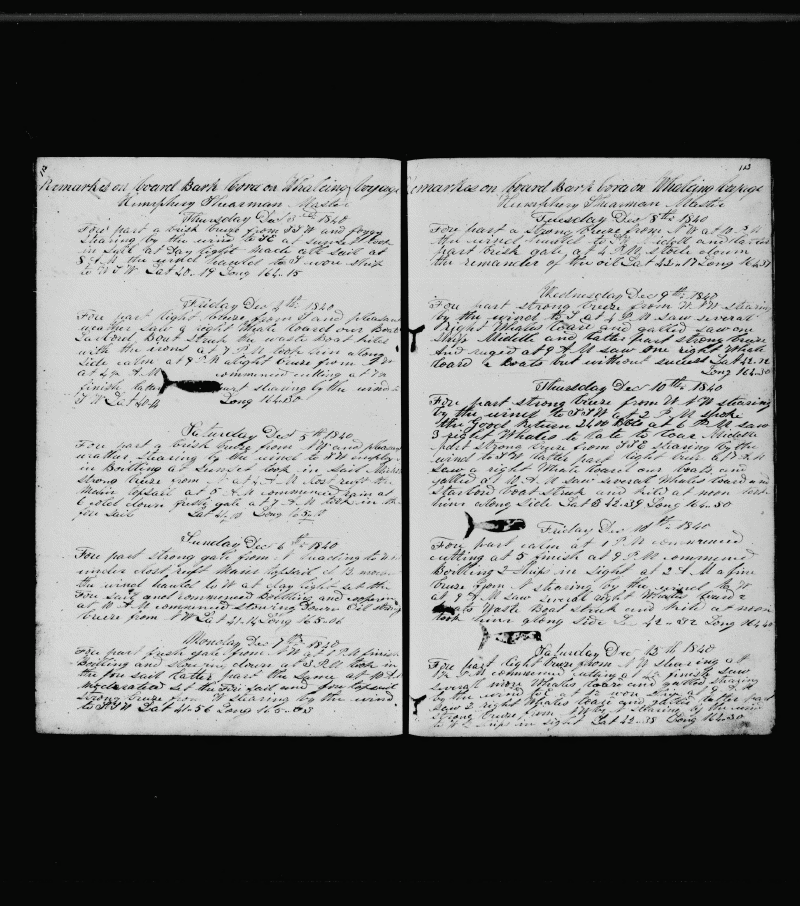 Remarks on board Bark Cora on Whaleing Voyage
Humphry Shearman Master
Thursday Dec 3th 1840
Fore part a brisk breeze from SSW and foggy
stearing by the wind to SE at sunset took
in sail at Day light made all sail at
8 A M the wind hauled to S wore ship
to W S W Lat 40-19 Long 164-15
Friday Dec 4th 1840
Fore part light breeze from S and pleasant
weather Saw a right Whale loard our boats
Larbord Boat Struck the waste boat kiled
with the irons at 7 P M took him along
Side calm at 9 P M a light breeze from
at 4 A M commenced cutting at
finish latter part stearing by the wind
S W Lat 40-41 Long 164-30
Saturday Dec 5th 1840
Fore part a brisk breeze from NW and pleasant
weather Stearing by the wind to SW employ
in Boiling at Sunset took in sail Middle
strong breeze from N at 4 A M close reeft the
main topsail at 5 A M commenced rain at
Cooled down fresh gale at 7 A M took in the
fore sail Lat Long 165
Sunday Dec 6th 1840
Fore part strong gale from N heading to
under close reeft Main topsail at 12
the wind hauled to W at day light set the
Fore sail and commenced boiling and coopering
at 10 A M commenced stowing down Oil strong
breeze from NW Lat 41-14 Long 165-06
Monday Dec 7th 1840
Fore part fresh gale from NW at 1 P M finish
Boiling and stowing down at 3 P M took in
the fore sail latter part the same at 10 A M
moderated set the Fore sail and fore topsail
strong breeze from W stearing by the wind
to SSW Lat 41-56 Long 165-03
113
Remarks on board Bark Cora on Whaleing Voyage
Humphry Shearman Master
Tuesday Dec 8th 1840
Fore part a Strong breeze from NW at P M
the wind hauled to and latter
part brisk gale at 4 P M stove down
the remander of the oil Lat 42-17 Long 164-37
Wednesday Dec 9th 1840
Fore part strong breeze from W N W stearing
by the wind to S at 4 P M saw several
Right Whales loard and gallied saw one
Ship Middle and latter part strong breeze
and ruged at 9 A M saw one right Whale
loard 2 boats but without success Lat 42-32
Long 164-30
Thursday Dec 10th 1840
Fore part strong breeze from W N W stearing
by the wind to SSW at 2 P M spoke
the Good Return 2400 bbls at 6 P M saw
3 right Whales to late to loar Middle
part strong breeze from SSE stearing by the
wind to SW latter part light breeze at 7 A M
Saw a right Whale loared our boats and
gallied at 10 A M saw several Whales loard and
Starbord boat Struck and kild at noon took
him along Side Lat 42-39 Long 164-50
Friday Dec 11th 1840
Fore part calm at 1 P M commenced
cutting at 5 finish at 9 P M commenced
Boiling 2 Ships in Sight at 2 A M a fine
breeze from N stearing by the wind to W
at 9 A M saw several right Whales loard 2
boats Waste Boat Struck and kild at noon
took him along Side Lat 42-32 Long 164-40
Saturday Dec 12th 1840
Fore part light breeze from NW stearing at
P M commenced cutting at finish saw
severall more Whales loard and gallied stearing
by the wind at 12 wore ship at 9 A M
saw 2 right Whales loard and gallied latter part
strong breeze from stearing by the wind
to ships in sight Lat 42-35 Long 164-30